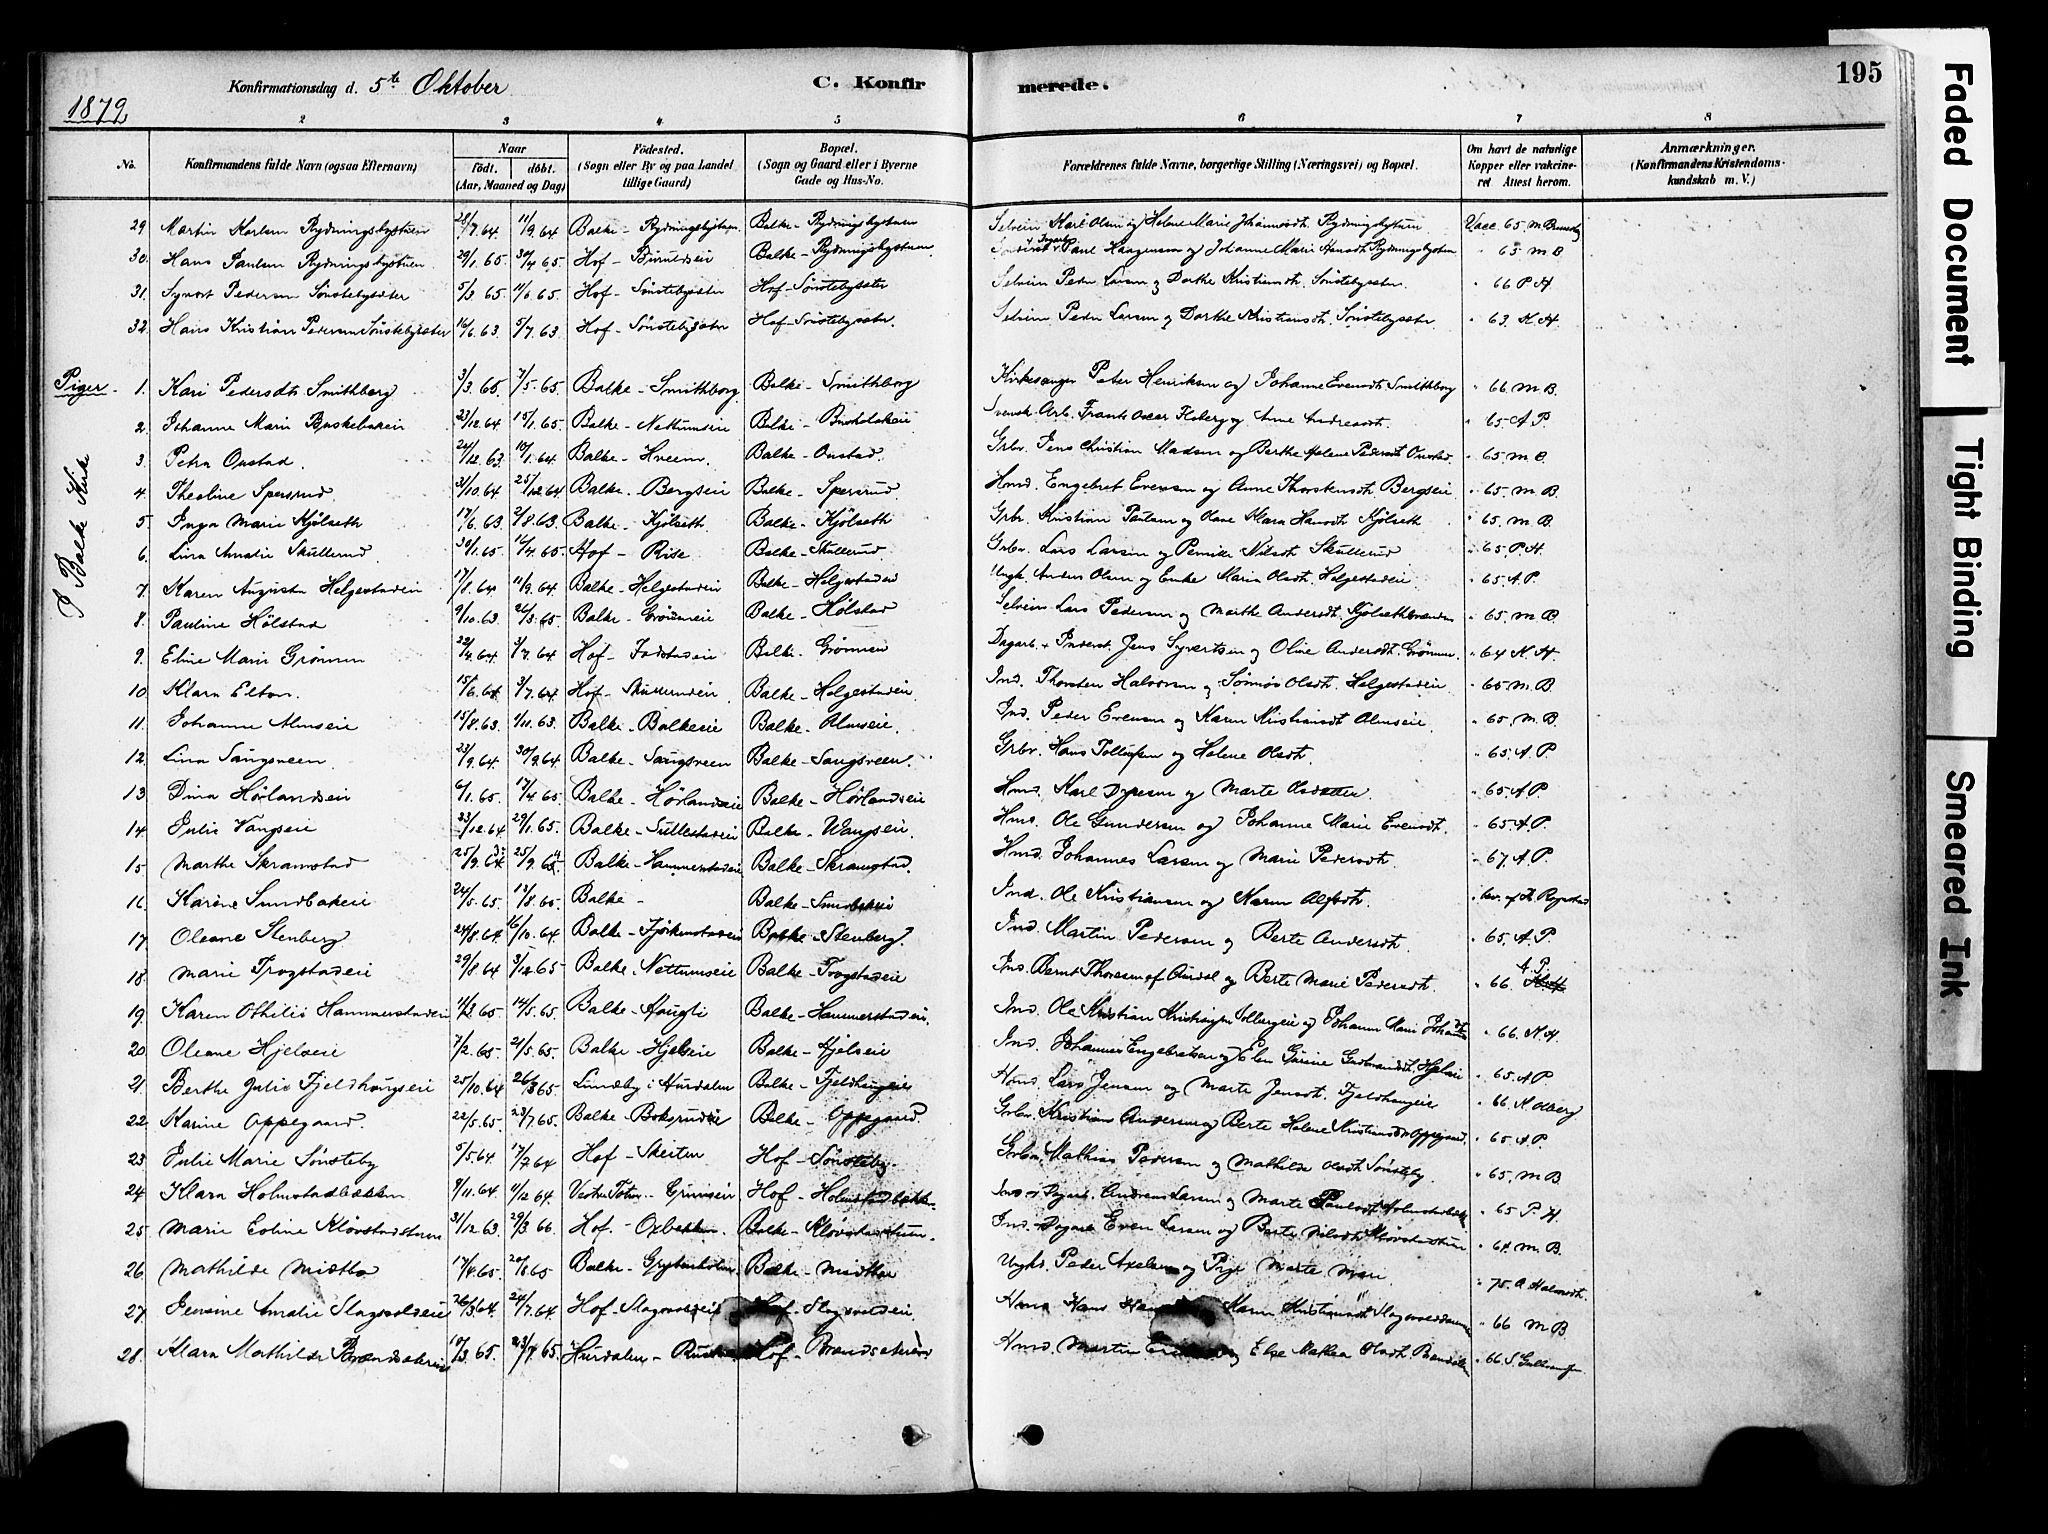 Konfirmationsdag d. 5te Oktober C. Konfir merede. 195
1879
2 3 4 5 6 7 8
No. Konfirmandens fulde Navn (ogsaa Efternavn) Naar født. døbt. (Aar, Maaned og Dag) Födested. (Sogn eller By og paa Landet tillige Gaard) Bopæl. (Sogn og Gaard eller i Byerne Gade og Hus-No. Forældrenes fulde Navne, borgerlige Stilling (Næringsvei) og Bopæl. Om havt de naturlige Kopper eller vakcineret Attest herom. Anmærkninger. (Konfirmandens Kristendomskundskab m. V.)
29 Martin Karlsen Rydningsbystuen 28/7 64 11/9 64 Balke - Rydningsbystuen Balke - Rydningsbystuen Selveier Karl Olsen og Helene Marie Johannesdt. Rydningbystuen Vacc. 65. M.
30. Hans Paulsen Rydningsbystuen 29/1 65. 30/4 65. Hof - Balke - Rydningsbystuen Paul Haagensen og Johanne Marie Hansdt Rydningsbystuen " 65. M B
31. Syvert Pedersen Sønstebysæter 5/3 65 11/6 65. Hof - Sønstebysæter Hof - Sønstebysæter Selveier Peder Larsen og Dorthe Kristiansdt. Sønstebysæter. " 66 P. H.
32. Hans Kristian Pedersen Sønstebysæter 16/6 63 5/7. 63 Hof - Sønstebysæter Hof - Sønstebysæter. Selveier Peder Larsen og Dorthe Kristiansdt. Sønstebysæter " 63. K. H.
Piger -
I Balke Kirke
1. Kari Pedersdt. Smithberg 3/3. 65 7/5. 65 Balke - Smithborg Balke - Smithborg Kirkesanger Peter Henriksen og Johanne Evensdt Smithborg " 66. M. B.
2. Johanne Marie 23/12. 64 15/1. 65. Balke - Nettumseie Balke - Svensk. Arb. Frants Oscar og Anne Andreasdt. " 65. A. P.
3. Petra Onstad. 24/12. 63 10/1. 64 Balke - Hveem. Balke - Onstad. Grbr. Jens Christian Madsen og Berthe Helene Pedersdt Onstad. " 65. M. B.
4. Theoline Spersrud. 31/10. 64. 25/12. 64 Balke - Bergseie Balke - Spersrud Hmd. Engebret Evensen og Anne Thorstensdt. Bergseie. " 65. M. B.
5. Inga Marie Kjølseth 17/6. 63 2/8. 63. Balke - Kjølseth Balke - Kjølseth Grbr. Kristian Paulsen og Olave Maria Hansdt Kjølseth " 65. M. B.
6. Lina Amalie Skullerud. 30/1. 65 16/4. 65. Hof - Rise Balke - Skullerud Grbr. Lars Larsen og Pernille Nilsdt Skullerud " 65. P. H.
7. Karen Augusta Helgestadeie 17/8. 64 11/9. 64 Balke - Helgestadeie Balke - Helgestadeie Ungk. Anders Olsen og Enke Maria Olsdt. Helgestadeie " 65. A. P.
8. Pauline Hølstad 9/10. 63 26/3. 65. Balke - Balke - Hølstad Selveier Lars Pedersen og Marthe Andersdt. " 65. M. B.
9. Eline Marie Grønnen 22/4. 64 3/7. 64 Hof - Balke - Grønnen Dagarb. + Inderst. Jens Syvertsen og Oline Andersdt. Grønnen. " 64 K. H.
10. Klara Elton. 15/6. 64 3/7. 64 Hof - Skullerudeie Balke - Helgestadeie Ind. Thorsten Halvorsen og Olsdt. Helgestadeie " 65 M. B.
11. Johanne Almseie 15/8. 63 1/11. 63. Balke - Balkeeie Balke - Almseie Ind. Peder Evensen og Karen Kristiansdt Almseie. " 65. M. B.
12. Lina Sangsveen. 23/9. 64 30/9. 64. Balke - Sangsveen Balke - Sangsveen. Grbr. Hans Tollefsen og Helene Olsdt. " 65. A. P.
13 Dina Hørlandseie 6/1. 65. 17/4 65 Balke - Hørlandseie Balke - Hørlandseie Hmd. Karl Dyresen og Marte Olsdatter. " 65. A. P.
14. Julie Vangseie 23/12. 64 29/1. 65. Balke - Sullestadeie Balke - Wangseie. Hmd. Ole Gundersen og Johanne Marie Evensdt. " 65. A. P.
15. Marthe Skramstad 25/9. 64 25/9 65 Balke - Hammerstadeie Balke - Skramstad. Hmd. Johannes Larsen og Marie Pedersdt. " 67. A. P.
16. Karine Sundbakeie 24/5. 65. 13/8. 65 Balke - Balke - Sundbakeie Ind. Ole Kristiansen og Karen
17. Oleane Stenberg 24/8. 64. 16/10. 64 Balke - Balke - Stenberg. Ind. Martin Pedersen og Berte Andersdt. " 65. A. P.
18. Marie Trogstadeie 29/8. 64 3/12 65 Balke - Nettumseie Balke - Trogstadeie Ind. Bernt Thoresen af Aurdal og Berte Marie Pedersdt. " 66. A. P.
19. Karen Othilie Hammerstadeie 11/3. 65. 14/5. 65. Balke - Haugli Balke - Hammerstadeie. Ind. Ole Kristian Kristiansen og Johanne Marie " 66. K. H.
20. Oleane Hjelseie 7/2. 65. 21/5. 65. Balke - Hjelseie Balke - Hjelseie Ind. Johannes Engebretsen og Elen Gurine Gudmandsdt. Hjelseie " 65. A. P.
21. Berthe Julie Fjeldhaugseie 25/10. 64 26/3 65 Lundeby i Hurdalen Balke - Fjeldhaugeie Hmd. Lars Jensen og Marte Jensdt. Fjeldhaugeie " 66. K. Odberg
22. Karine Oppegaard. 22/5. 65. 23/7. 65. Balke - Balke - Oppegaard Grbr. Kristian Andersen og Berte Helene Kristiansdt Oppegaard. " 65 A. P.
23. Julie Marie Sønsteby 5/5. 64. 17/7 64 Hof - Skeiten Hof - Sønsteby. Grbr. Mathias Pedersen og Mathilde Olsdt Sønsteby. " 65. M B
24. Klara Holmstadbækken 9/11. 64. 11/12 64. Vestre Toten - Hof - Holmstadbækken Ind. Andreas Larsen og Marte Paulsdt " 65 P. H.
25. Marie Eoline Kløvstadstuen 31/12. 63 29/3 66 Hof. - Oxbakken. Balke - Kløvstadstuen. Ind. Even Larsen og Berte Nilsdt Kløvstadstuen " 64. M. B.
26. Mathilde Midtbo 17/4. 65. 20/8 65 Balke - Balke - Midtbo Ungk. Peder Axelsen og Pige Marte Marie " 75. A. Halvorsdt.
27. Jensine Amalie Slagsvoldeie 26/3 64. 24/7. 64. Hof - Slagsvoldeie Hof - Slagsvoldeie. Hmd. Hans Karen Kristiansdt " 66 M. B
28. Klara Mathilde 19/3. 65. 23/7. 65. Hurdalen - Hof - Hmd. Martin Else Mathea Olsdt. " 66. S.
Faded Document
Tight Binding
Smeared Ink.